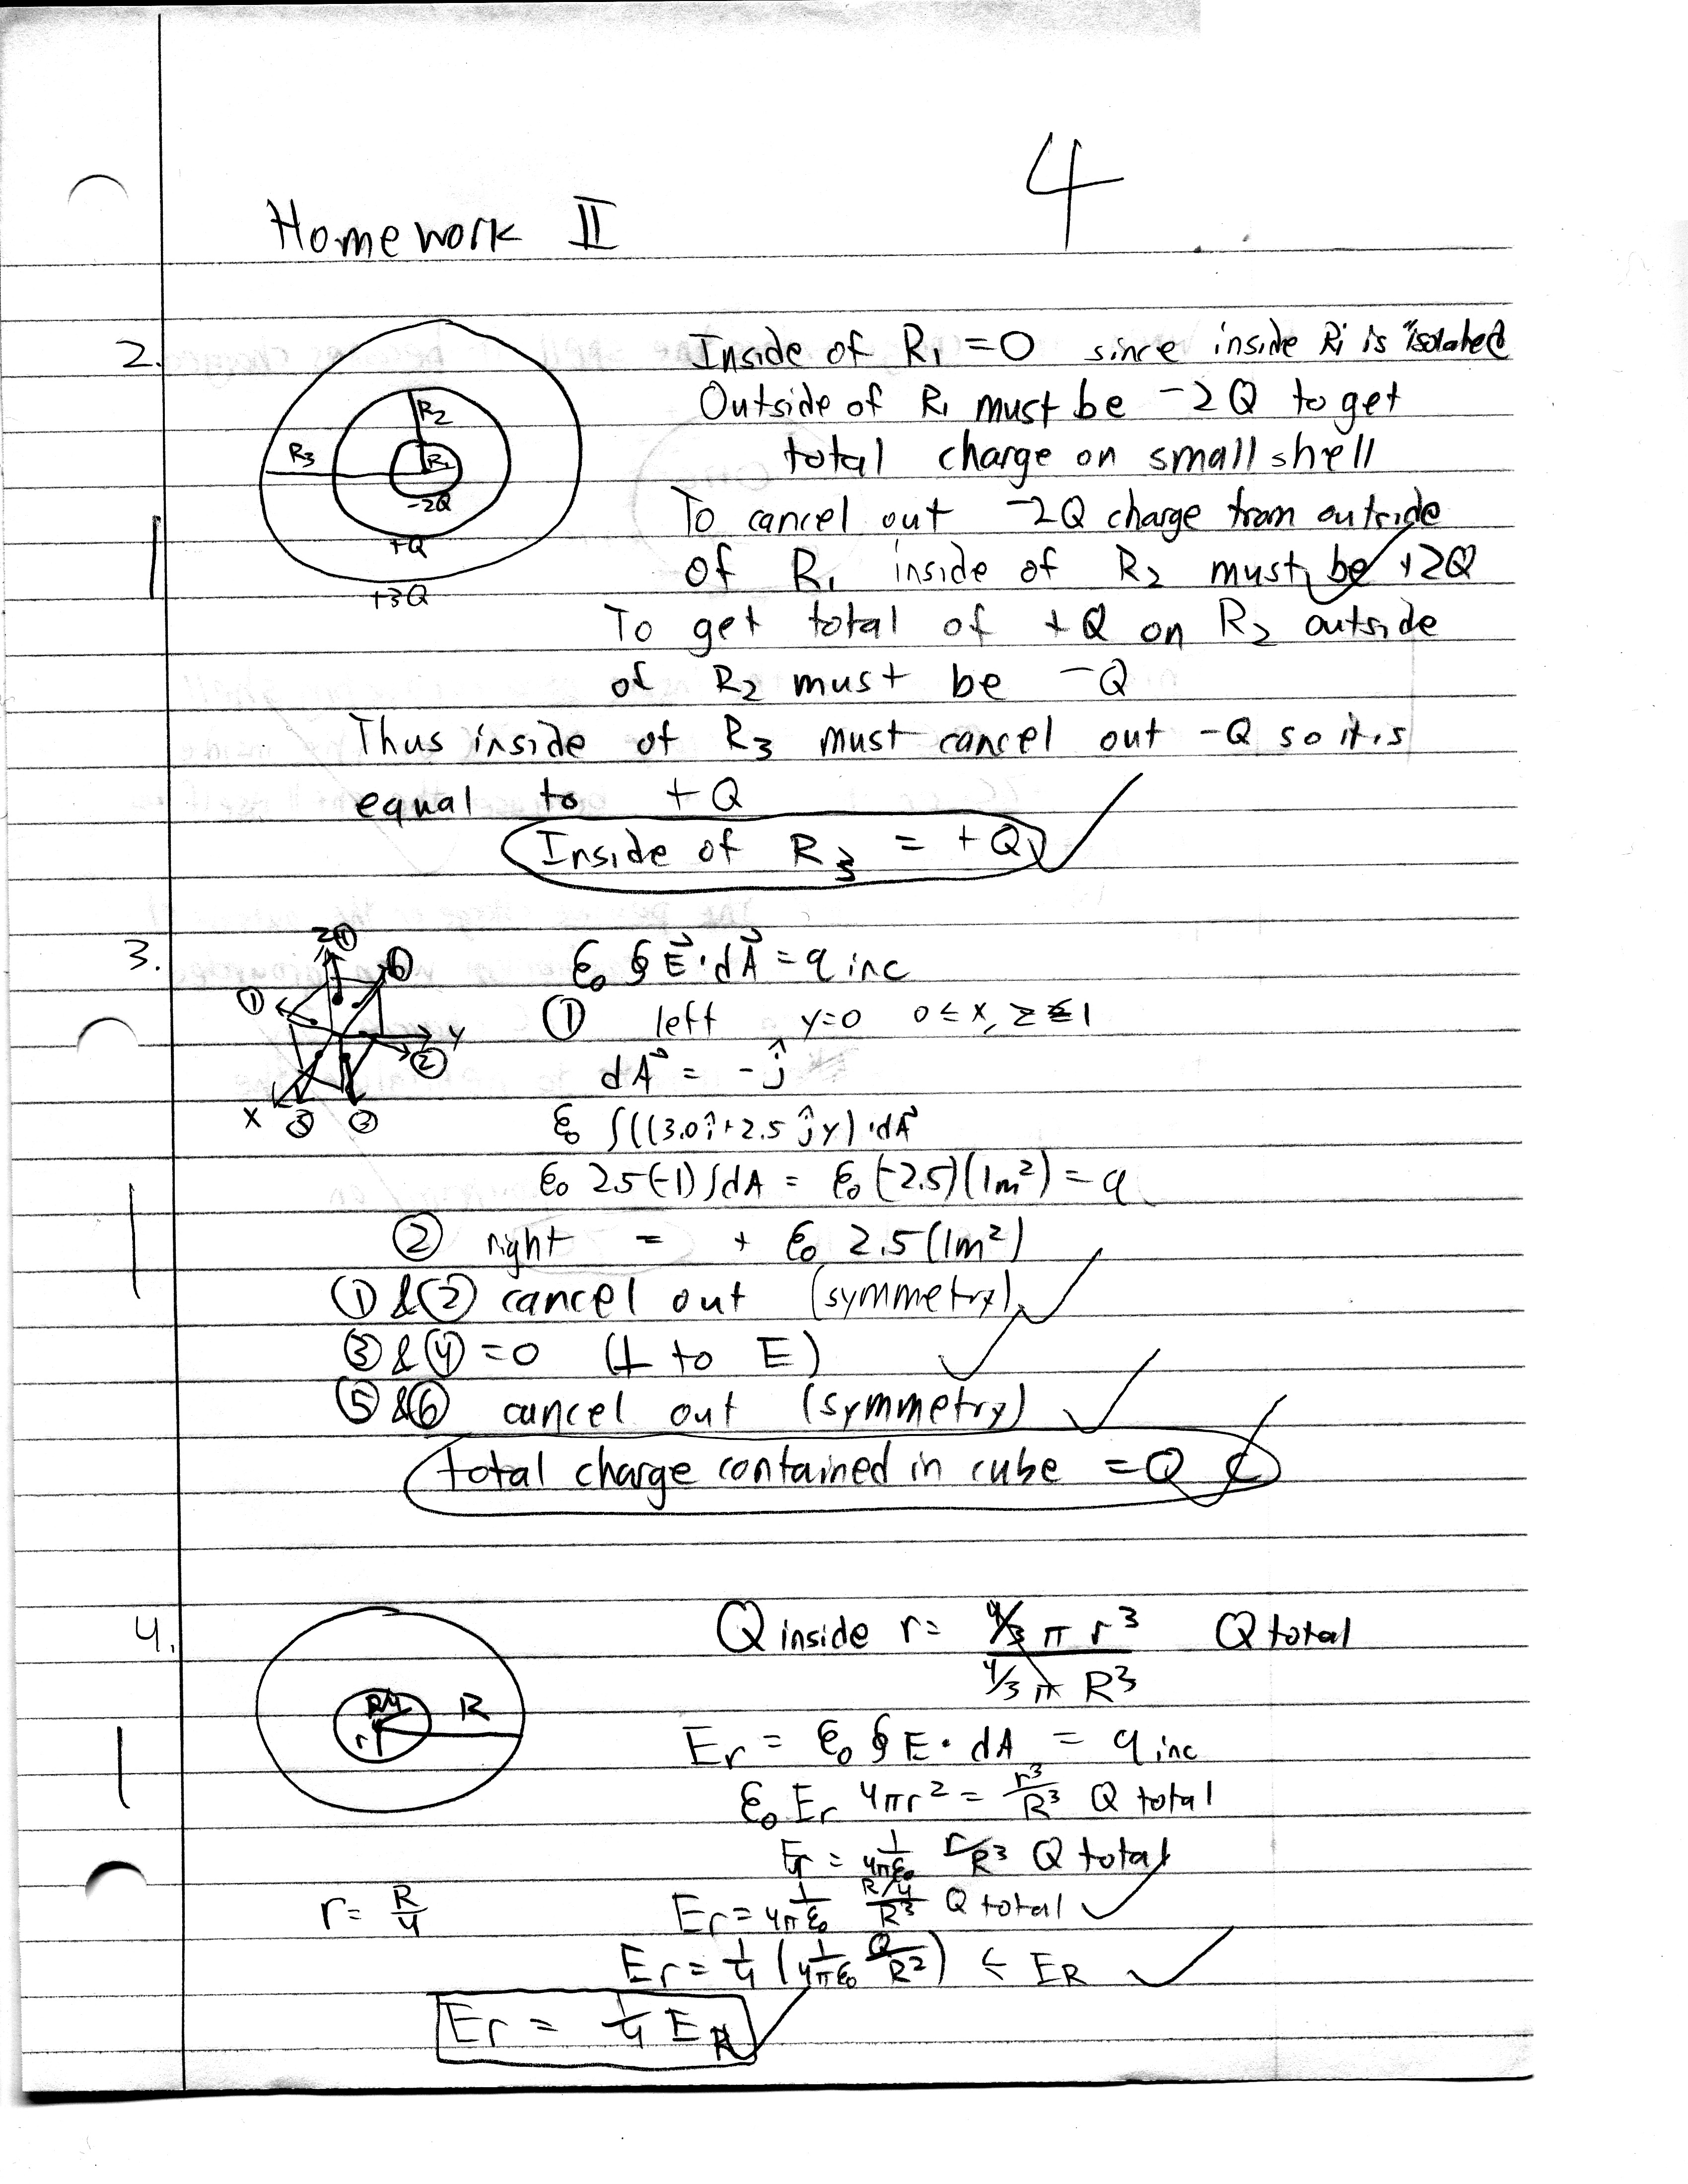 4
Homework II
2.
R2
R3
R1
-2Q
+Q
+3Q
Inside of R1 = 0 since inside R1 is isolated
Outside of R1 must be -2Q to get
total charge on small shell
To cancel out -2Q charge from outside
of R1 inside of R2 must be +2Q
To get total of +Q on R2 outside
of R2 must be -Q
Thus inside of R3 must cancel out -Q so it is
equal to +Q
Inside of R3 = +Q
3.
Z ④
⑥
①
Y
②
X ⑤ ③
ε₀ ∮ E⃗ · dA⃗ = q inc
① left y=0 0 ≤ x, z ≤ 1
dA⃗ = - ĵ
ε₀ ∫((3.0 î + 2.5 ĵ y) · dA⃗
ε₀ 2.5 (-1) ∫dA = ε₀ (-2.5)(1m²) = q
② right = + ε₀ 2.5 (1m²)
① & ② cancel out (symmetry)
③ & ④ = 0 (⊥ to E)
⑤ & ⑥ cancel out (symmetry)
total charge contained in cube = 0 C
4.
R/4 R
r
Q inside r = 4/3 π r³ / 4/3 π R³ Q total
Er = ε₀ ∮ E · dA = q inc
ε₀ Er 4πr² = r³/R³ Q total
Er = 1/4πε₀ r/R³ Q total
r = R/4
Er = 1/4πε₀ (R/4)/R³ Q total
Er = 1/4 (1/4πε₀ Q/R²) ← ER
Er = 1/4 ER